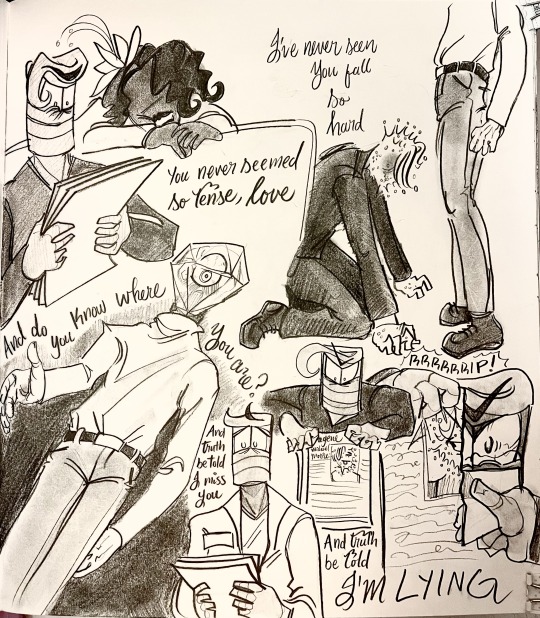 I've never seen
You fall
So
hard
You never seemed
so tense, love
And do you know where
You are?
And
truth
be told
I miss
you
RRRRRRRIP!
And truth
be told
I'M LYING